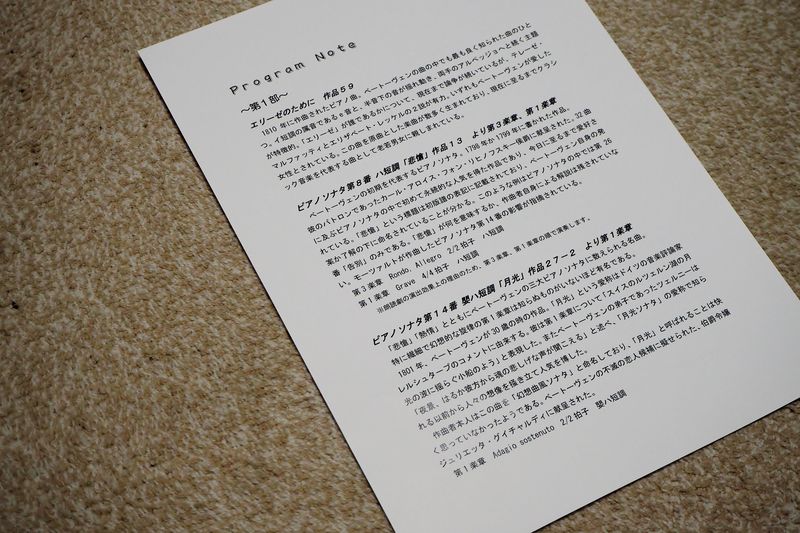 Program Note
～第1部～
エリーゼのために 作品59
1810 年に作曲されたピアノ曲。ベートーヴェンの曲の中でも最も良く知られた曲のひと
つ。イ短調の属音であるe音と、半音下の音が揺れ動き、両手のアルペッジョへと続く主題
が特徴的。「エリーゼ」が誰であるかについて、現在まで論争が続いているが、テレーゼ・
マルファッティとエリザベート・レッケルの2説が有力。いずれもベートーヴェンが愛した
女性とされている。この曲を原曲とした楽曲が数多く生まれており、現在に至るまでクラシ
ック音楽を代表する曲として老若男女に親しまれている。
ピアノソナタ第8番 ハ短調「悲愴」作品13 より第3楽章、第1楽章
ベートーヴェンの初期を代表するピアノソナタ。1798 年から 1799 年に書かれた作品。
彼のパトロンであったカール・アロイス・フォン・リヒノフスキー侯爵に献呈された。32 曲
に及ぶピアノソナタの中で初めて永続的な人気を得た作品であり、今日に至るまで愛好さ
れている。「悲愴」という標題は初版譜の表紙に記載されており、ベートーヴェン自身の発
案か了解の下に命名されていることが分かる。このような例はピアノソナタの中では第 26
番「告別」のみである。「悲愴」が何を意味するか、作曲者自身による解説は残されていな
い。モーツァルトが作曲したピアノソナタ第14番の影響が指摘されている。
第3楽章 Rondo, Allegro 2/2 拍子 ハ短調
第1楽章 Grave 4/4 拍子 ハ短調
※朗読劇の演出効果上の理由のため、第3楽章、第1楽章の順で演奏します。
ピアノソナタ第14番 嬰ハ短調「月光」作品27－2 より第1楽章
「悲愴」「熱情」とともにベートーヴェンの三大ピアノソナタに数えられる名曲。
特に繊細で幻想的な旋律の第1楽章は知らぬものがいないほど有名である。
1801 年、ベートーヴェンが30歳の時の作品。「月光」という愛称はドイツの音楽評論家
レルシュタープのコメントに由来する。彼は第1楽章について「スイスのルツェルン湖の月
光の波に揺らぐ小船のよう」と表現した。またベートーヴェンの弟子であったツェルニーは
「夜景、はるか彼方から魂の悲しげな声が聞こえる」と述べ、「月光ソナタ」の愛称で知ら
れる以前から人々の想像を掻き立て人気を博した。
作曲者本人はこの曲を「幻想曲風ソナタ」と命名しており、「月光」と呼ばれることは快
く思っていなかったようである。ベートーヴェンの不滅の恋人候補に擬せられた、伯爵令嬢
ジュリエッタ・グイチャルディに献呈された。
第1楽章 Adagio sostenuto 2/2 拍子 嬰ハ短調